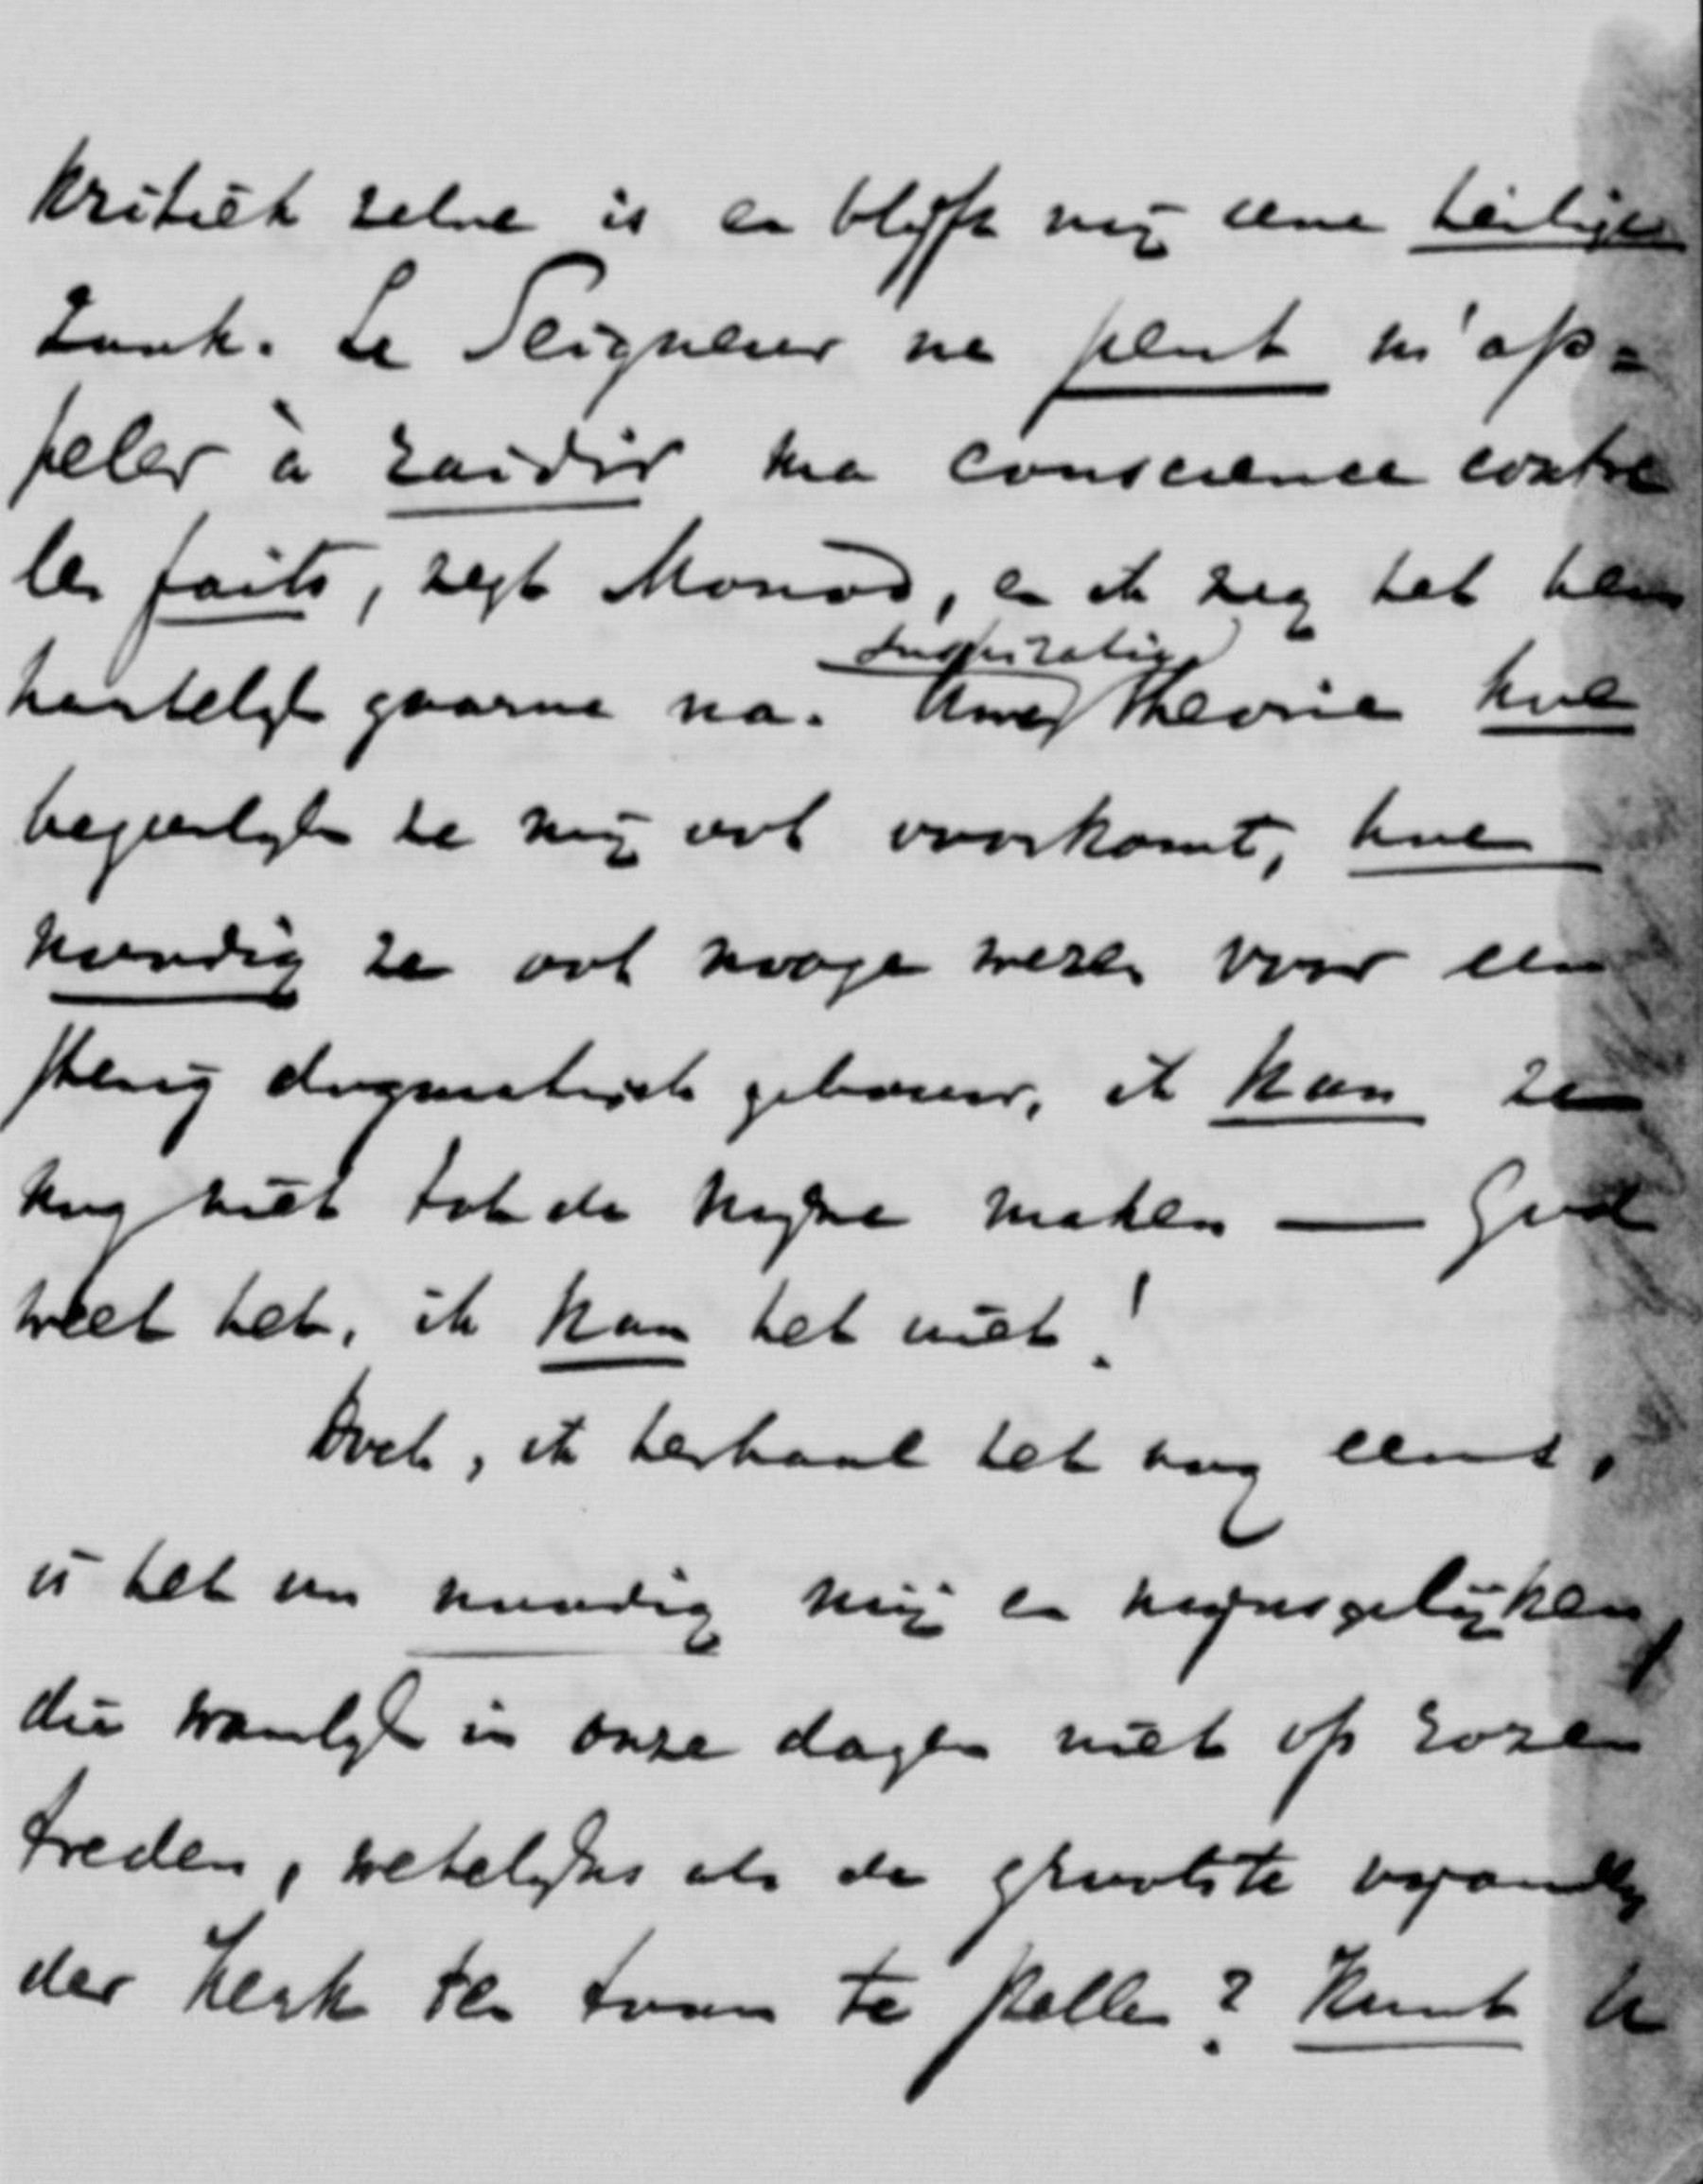 kritiek zelve is en blijft mij eene heilige
zaak. Le Seigneur ne peut m'ap=
peler à raidir ma conscience contre
les faits, zegt Monod, en ik zeg het hem
hartelijk gaarne na. Uwe inspiratie theorie hoe
begeerlijk ze mij ook voorkomt, hoe
noodig ze ook moge wezen voor een
stevig dogmatisch gebouw, ik kan ze
nog niet tot de mijne maken — God
weet het, ik kan het niet!
Doch, ik herhaal het nog eens,
is het nu noodig mij en mijnsgelijken,
die waarlijk in onze dagen niet op rozen
treden, wekelijks als de grootste vijanden
der Kerk ten toon te stellen? Kunt U